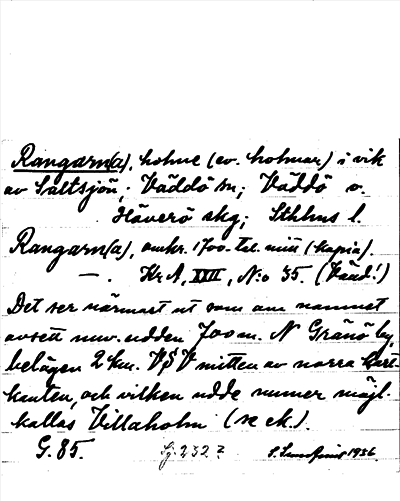 Rangarn(a), holme (ev. holmar) i vik
av Saltsjön; Väddö sn; Väddö o.
Häverö skg; Sthlms l.
Rangarn(a), omkr. 1700-tal. mitt (kopia).
—. Kr A, XXIII, No 35. (Vädd!)
Det ser närmast ut som om namnet
avsett nuv. udden 700 m. N Gränö by,
belägen 2 km. VSV mitten av norra kart-
kanten, och vilken udde numer möjl.
kallas Villaholm (se ek.).
G. 85. Sj. 232 ? 1936